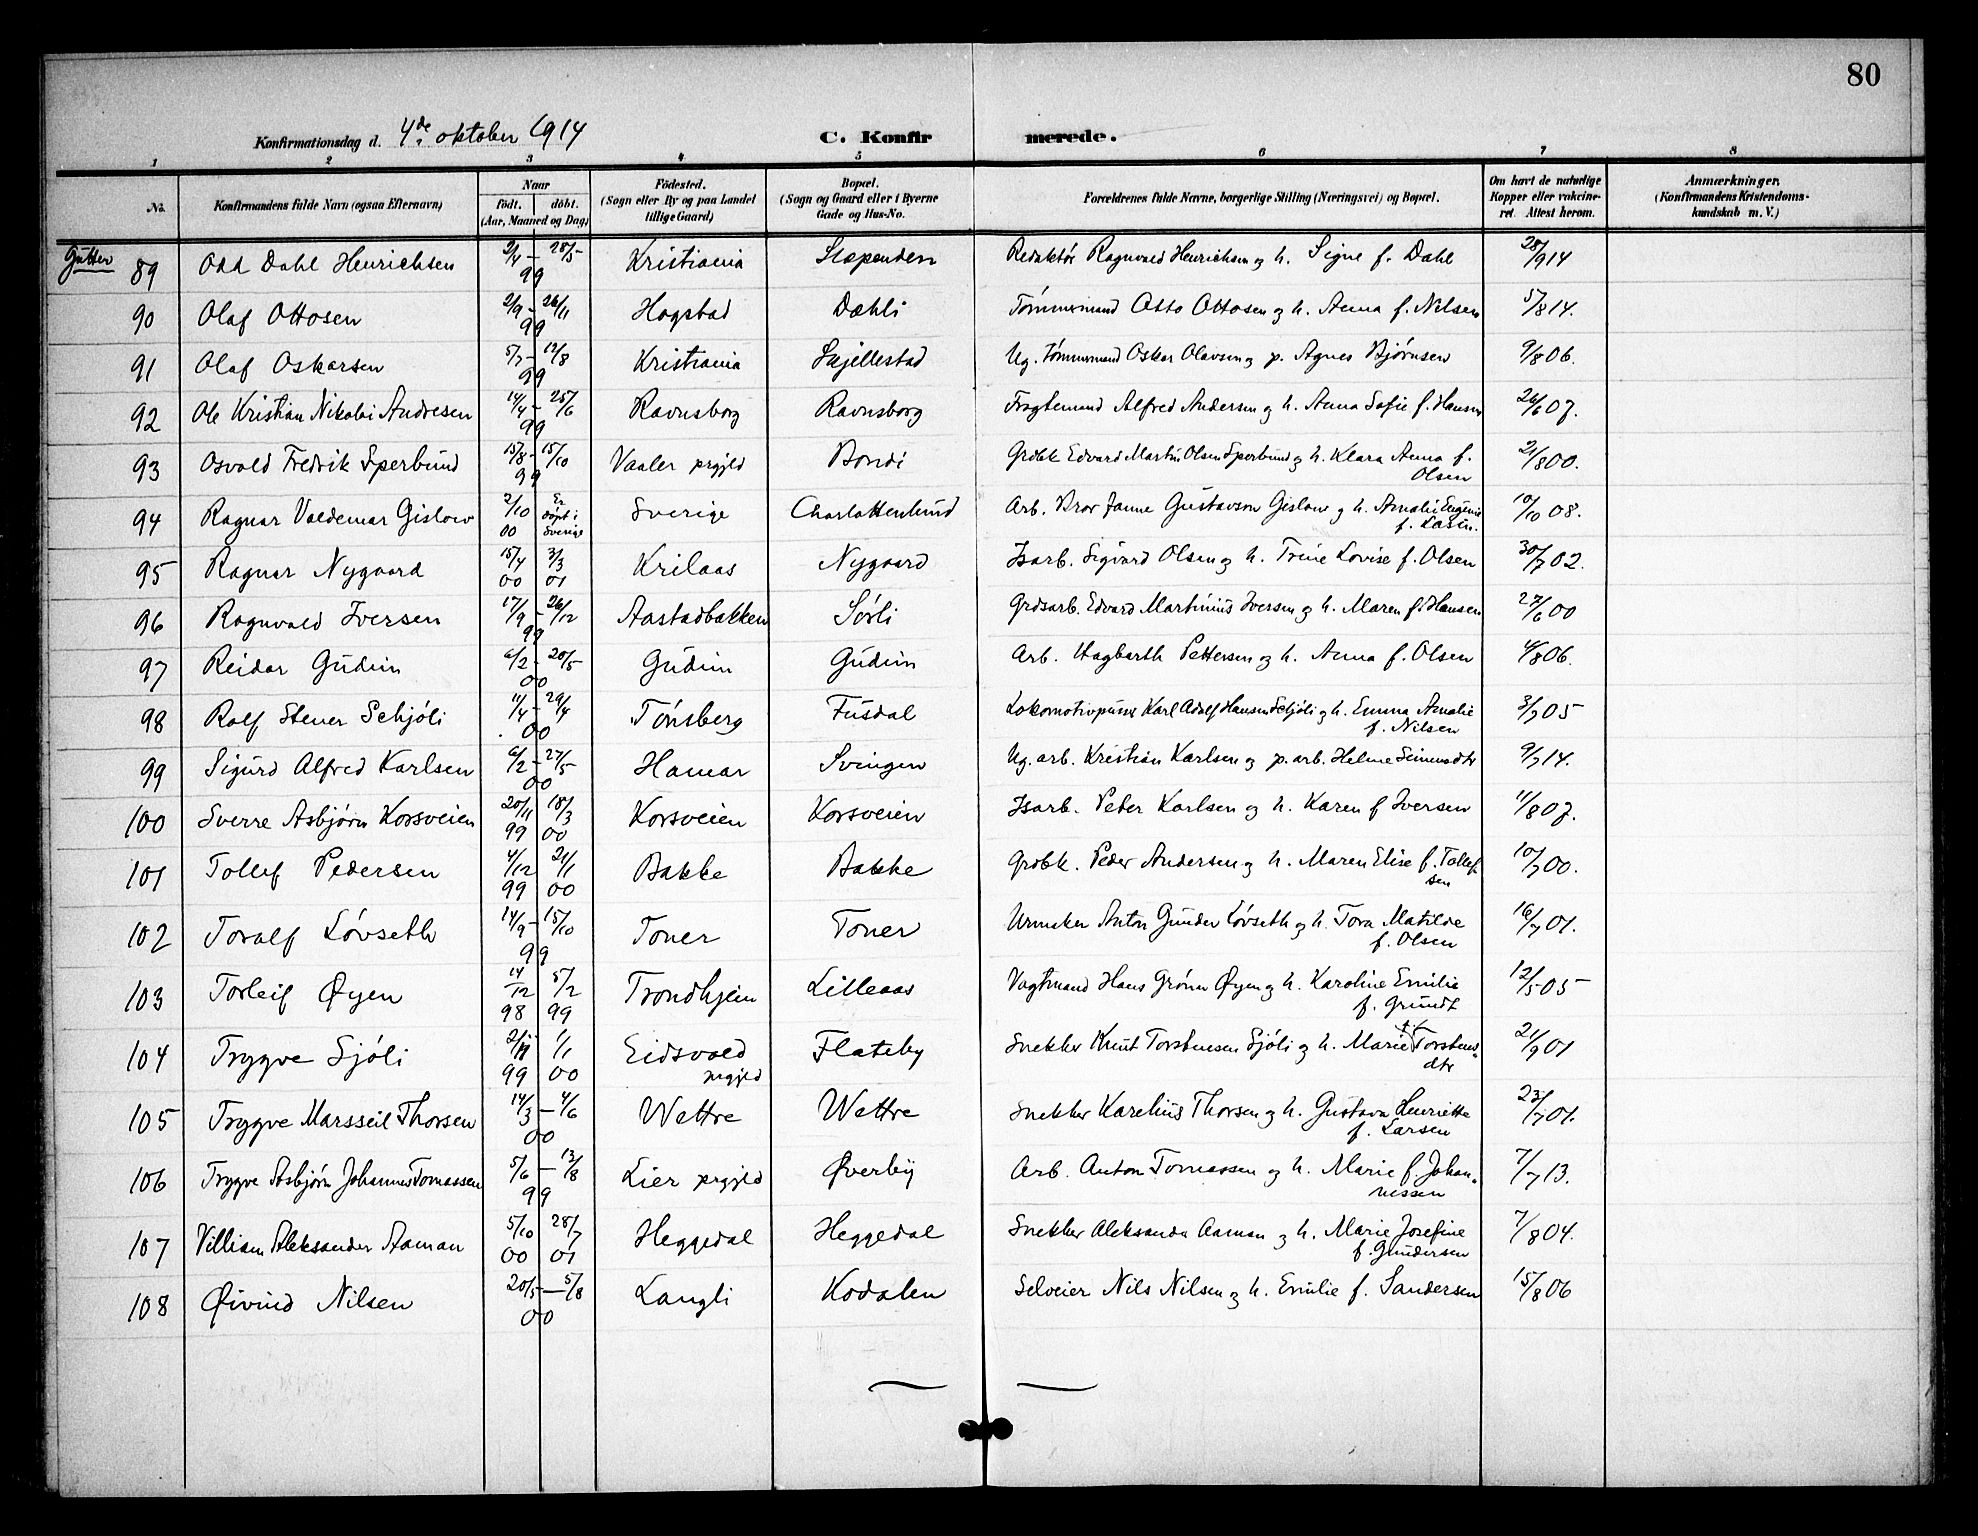 80
Konfirmationsdag d. 4de oktober 1914 C. Konfirmerede.
1 2 3 4 5 6 7 8
No. Konfirmandens fulde Navn (ogsaa Efternavn) Naar født. døbt. (Aar, Maaned og Dag) Fødested. (Sogn eller By og paa Landet tillige Gaard) Bopæl. (Sogn og Gaard eller i Byerne Gade og Hus-No. Forældrenes fulde Navne, borgerlige Stilling (Næringsvei) og Bopæl. Om havt de naturlige Kopper eller vakcineret. Attest herom. Anmærkninger. (Konfirmandens Kristendomskundskab m. V.)
Gutter
89 Odd Dahl Henrichsen 2/4 – 28/5 99 Kristiania Slependen Redaktør Ragnvald Henrichsen og h. Signe f. Dahl 28/9 14
90 Olaf Ottosen 2/9 – 26/11 99 Hogstad Dæhli Tømmermand Otto Ottosen og h. Anna f. Nilsen 5/8 14.
91 Olaf Oskarsen 5/7 – 12/8 99 Kristiania Skjellestad Ug. Tømmermand Oskar Olavsen og p. Agnes Bjørnsen 9/8 06.
92 Ole Kristian Nikolai Andresen 14/4 – 25/6 99 Ravnsborg Ravnsborg Fragtemand Alfred Andersen og h. Anna Sofie f. Hansen 26/6 07.
93 Osvald Fredrik Sperbund 15/8 – 15/10 99 Vaaler prgjld Bondi Grdbk Edvard Martin Olsen Sperbund og h. Klara Anna f. Olsen 21/8 00.
94 Ragnar Valdemar Gislow 2/10 00 Er døpt i Sverige Sverige Charlottenlund Arb. Bror Janne Gustavson Gislow og h. Amalie Eugenie f. 10/10 08.
95 Ragnar Nygaard 15/4 00 3/3 01 Krilaas Nygaard Isarb. Sigvard Olsen og h. Trine Lovise f. Olsen 30/7 02.
96 Ragnvald Iversen 17/9 – 26/12 99 Aastadbakken Sørli Grdsarb. Edvard Martinius Iversen og h. Maren f. Hansen 27/6 00
97 Reidar Gudim 6/2 – 20/5 00 Gudim Gudim Arb. Hagbarth Pettersen og h. Anna f. Olsen 4/8 06.
98 Rolf Stener Schjøli 11/4 – 29/4 00 Tønsberg Fusdal Lokomotivpuss Karl Adolf Hansen Schjøli og h. Emma Amalie f. Nilsen 3/7 05
99 Sigurd Alfred Karlsen 6/2 – 27/5 00 Hamar Svingen Ug. arb. Kristian Karlsen og p. arb. Helene 9/7 14.
100 Sverre Asbjørn Korsveien 20/11 99 18/3 00 Korsveien Korsveien Isarb. Peder Karlsen og h. Karen f Iversen 11/8 07.
101 Tollef Pedersen 4/12 99 21/1 00 Bakke Bakke Grdbk. Peder Andersen og h. Maren Elise f. Tollefsen 10/7 00.
102 Toralf Løvseth 14/9 – 15/10 99 Toner Toner Urmaker Anton Gunder Løvseth og h. Tora Matilde f. Olsen 16/7 01.
103 Torleif Øyen 14/12 98 5/2 99 Trondhjem Lilleaas Vagtmand Hans Grønn Øyen og h. Karoline Emilie f. Grundt 12/5 05
104 Trygve Sjøli 2/11 99 1/1 00 Eidsvold prgjld Flateby Snekker Knut Torstensen Sjøli og h. Marie Torstensdtr 21/9 01
105 Trygve Marsseil Thorsen 14/3 – 4/6 00 Wettre Wettre Snekker Karelius Thorsen og h. Gustava Henriette f. Larsen 23/7 01.
106 Trygve Asbjørn Johannes Tomassen 5/6 – 13/8 99 Lier prgjld Øverby Arb. Anton Tomassen og h. Marie f. Johannessen 7/7 13.
107 Villiam Aleksander Aaman 5/10 00 28/7 01 Heggedal Heggedal Snekker Aleksander Aaman og h. Marie Josefine f. Gundersen 7/8 04.
108 Øivind Nilsen 20/5 – 5/8 00 Langli Kodalen Selveier Nils Nilsen og h. Emilie f. Sandersen 15/8 06